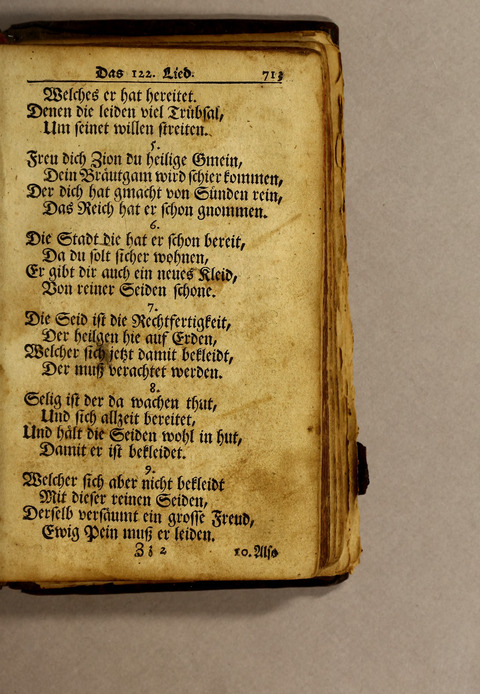 Das 122. Lied. 713
Welches er hat bereitet.
Denen die leiden viel Trübsal,
Um seinet willen streiten.
5.
Freu dich Zion du heilige Gmein,
Dein Bräutgam wird schier kommen,
Der dich hat gmacht von Sünden rein,
Das Reich hat er schon gnommen.
6.
Die Stadt die hat er schon bereit,
Da du solt sicher wohnen,
Er gibt dir auch ein neues Kleid,
Von reiner Seiden schone.
7.
Die Seid ist die Rechtfertigkeit,
Der heilgen hie auf Erden,
Welcher sich jetzt damit bekleidt,
Der muß verachtet werden.
8.
Selig ist der da wachen thut,
Und sich allzeit bereitet,
Und hält die Seiden wohl in hut,
Damit er ist bekleidet.
9.
Welcher sich aber nicht bekleidt
Mit dieser reinen Seiden,
Derselb versäumt ein grosse Freud,
Ewig Pein muß er leiden.
Z z 2 10. Also